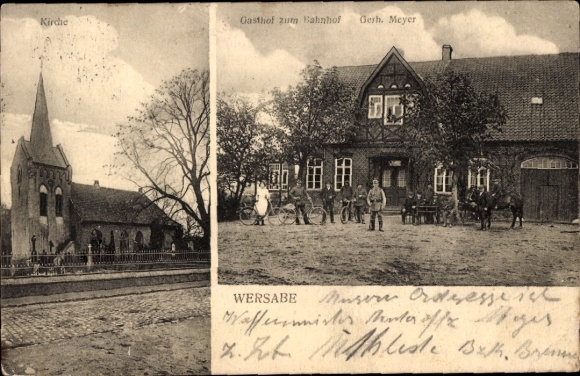 Kirche
Gasthof zum Bahnhof Gerh. Meyer
WERSABE
Unsere Adresse ist
Waffenmeister Unteroffz. Meyer
z. Zt. Uthlede Bzk. Bremen